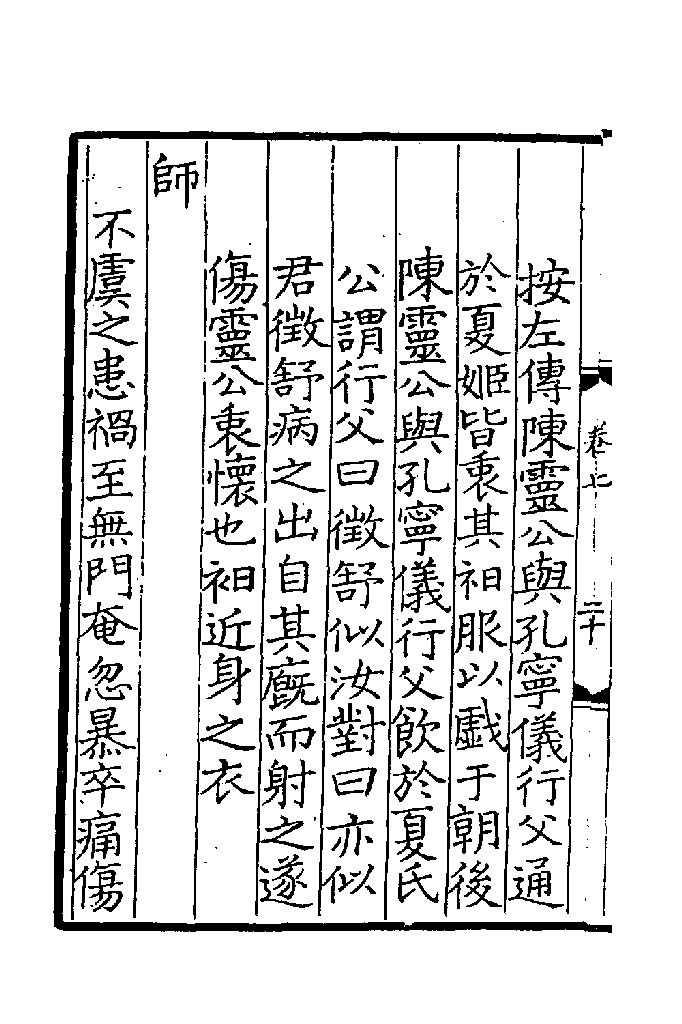 按左傳陳靈公與孔寧儀行父通
於夏姬皆衷其衵服以戲于朝後
陳靈公與孔寧儀行父飲於夏氏
公謂行父曰徵舒似汝對曰亦似
君徵舒病之出自其廐而射之遂
傷靈公衷懷也衵近身之衣
師
不虞之患禍至無門奄忽暴卒痛傷
卷七
二十